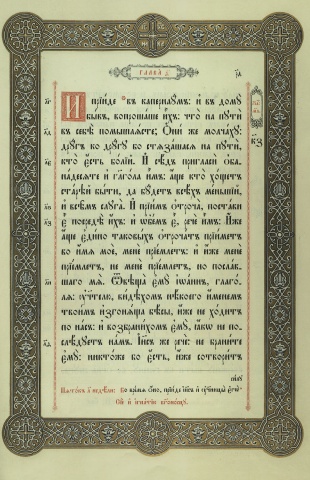 ГЛАВА
И прїиде въ капернаумъ: и въ дому
бывъ, вопрошаше ихъ: что на пути
въ себѣ помышлѧсте; Они же молчаху:
другъ ко другу бо стѧзашасѧ на пути,
кто есть болїй. И сѣдъ пригласи оба-
надесѧте и глагола имъ: аще кто хощетъ
старѣй быти, да будетъ всѣхъ меньшїй,
и всѣмъ слуга. И прїимъ отроча, постави
е посредѣ ихъ: и объемъ е, рече имъ: Иже
аще едино таковыхъ отрочатъ прїиметъ
во имѧ мое, мене прїемлетъ: и иже мене
прїемлетъ, не мене прїемлетъ, но послав-
шаго мѧ. Ѿвѣща ему їѡаннъ, глаго-
лѧ: учт҃лю, видѣхомъ нѣкоего именемъ
твоимъ изгонѧща бѣсы, иже не ходитъ
по насъ: и возбранихомъ ему, ꙗкѡ не по-
слѣдуетъ намъ. Іи҃съ же рече: не браните
ему: никтоже бо есть, иже сотворитъ
силу